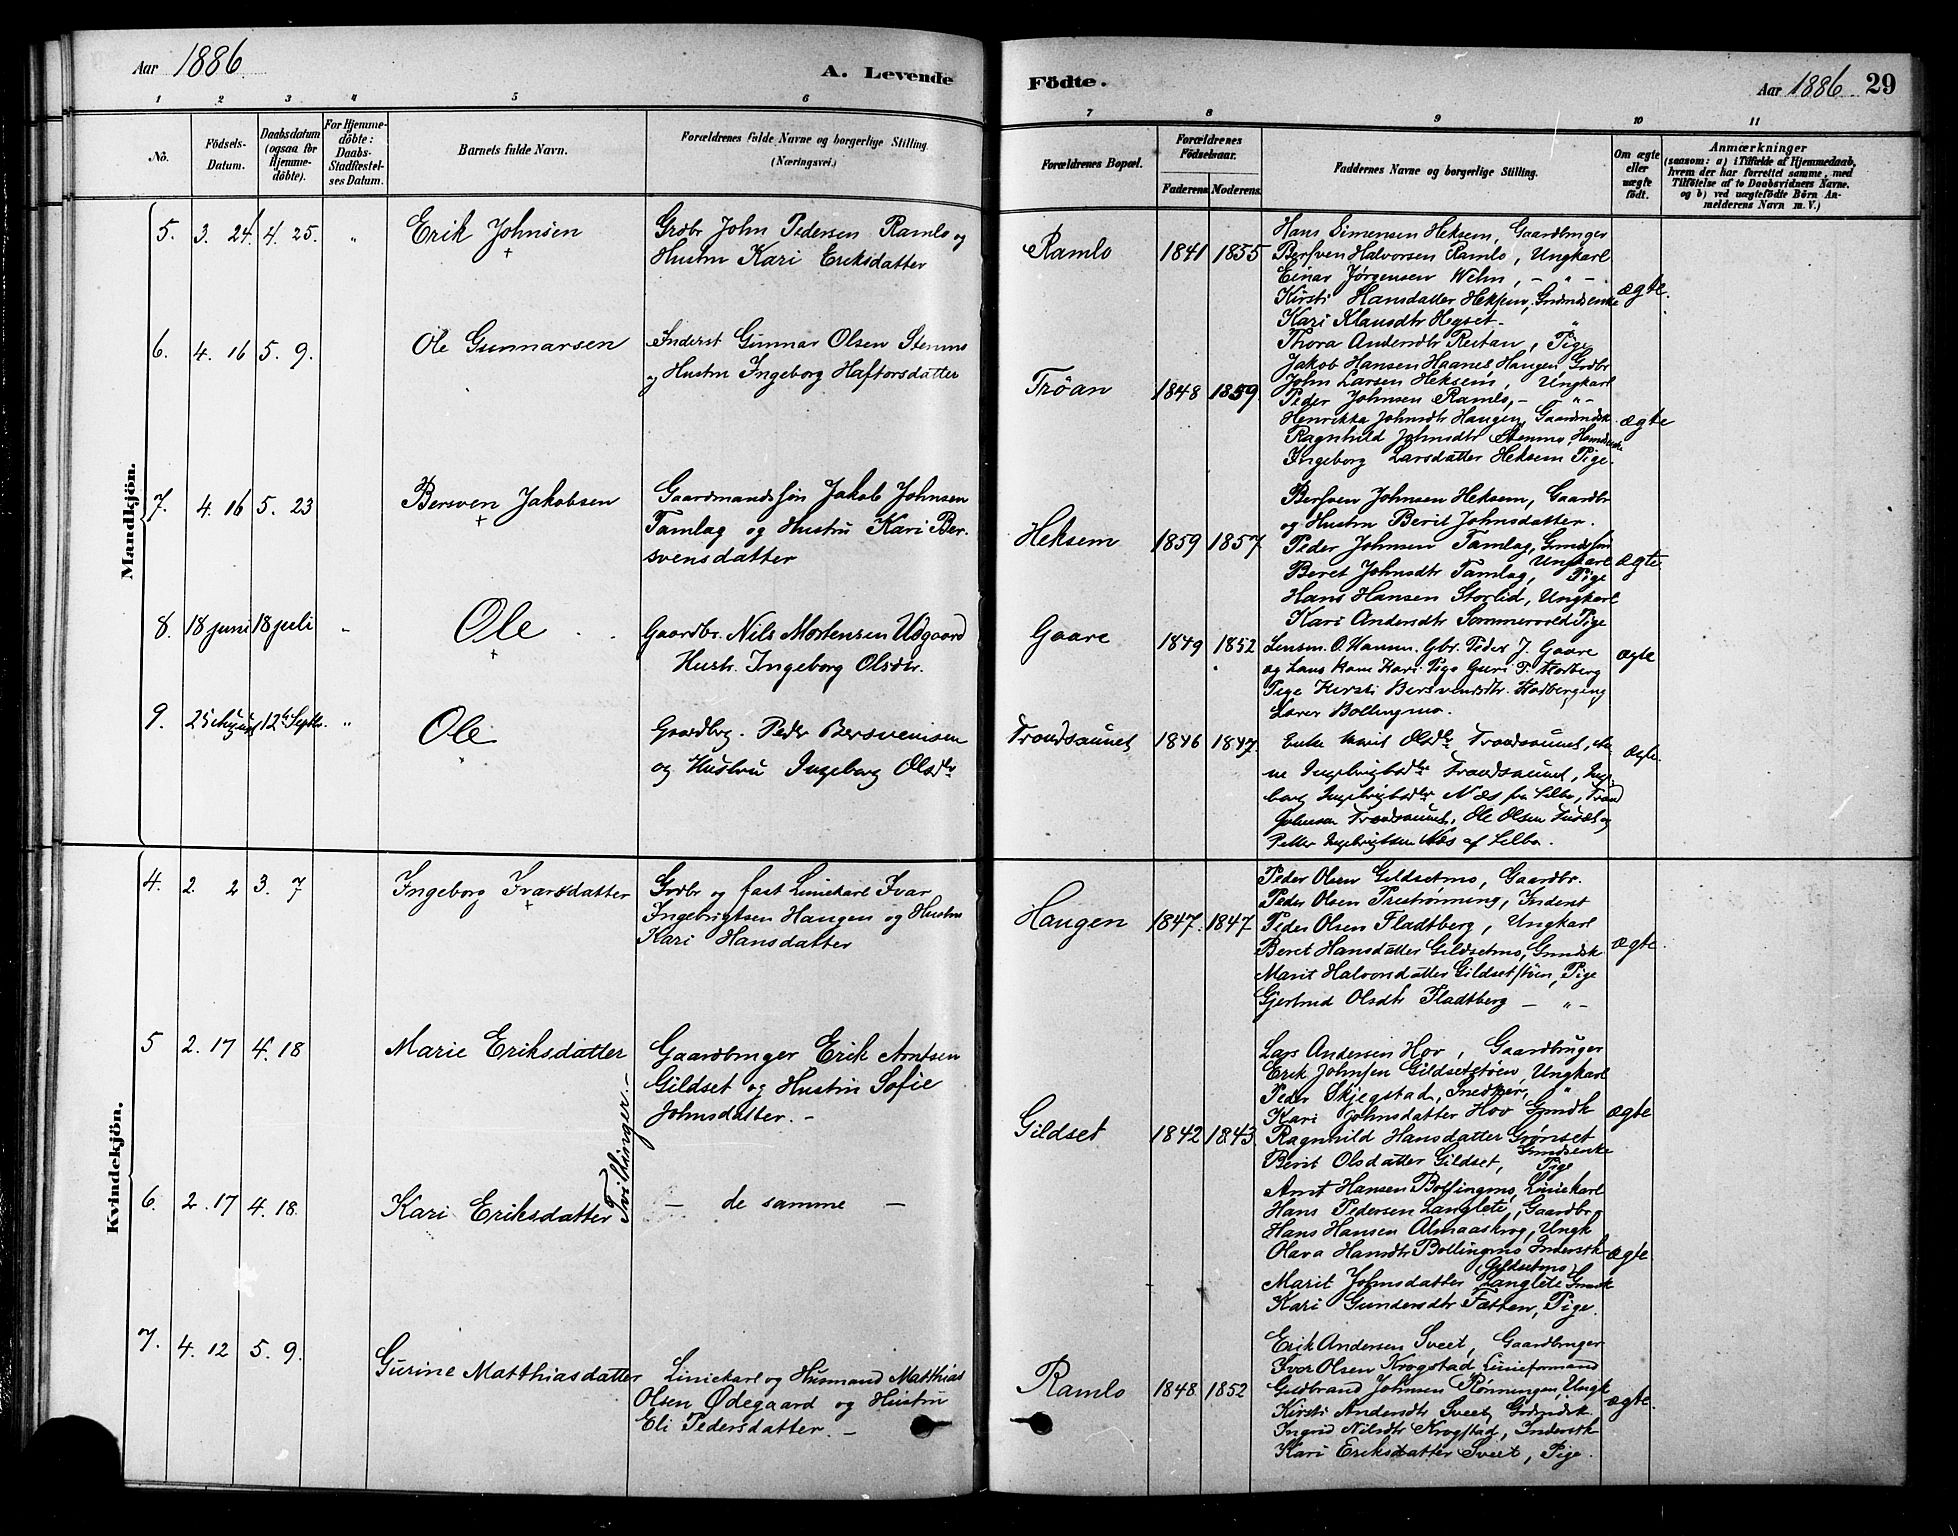 Aar 1886.
A. Levende
Födte.
Aar 1886 29
1 2 3 4 5 6
7 8 9 10 11
No.
Födsels-
Datum.
Daabsdatum
(ogsaa for
Hjemme-
döbte).
For Hjemme-
döbte:
Daabs-
Stadfæstel-
ses Datum.
Barnets fulde Navn.
Forældrenes fulde Navne og borgerlige Stilling
(Næringsvei.)
Forældrenes Bopæl.
Forældrenes
Födselsaar.
Faderens Moderens.
Faddernes Navne og borgerlige Stilling.
Om ægte
eller
uægte
födt.
Anmærkninger
(saasom: a) i Tilfælde af Hjemmedaab,
hvem der har forrettet samme, med
Tilföielse af to Daabsvidners Navne.
og b) ved uægtefödte Börn An-
melderens Navn m. V.)
Mandkjön.
5. 3. 24. 4. 25. "
Erik Johnsen
+
Grdbr John Pedersen Ramlo og
Hustru Kari Eriksdatter
Ramlo 1841 1855
Hans Simensen Heksem, Gaardbruger
Bersven Halvorsen Ramlo, Ungkarl
Einar Jørgensen Welm, - " -
Kirsti Hansdatter Heksem,
Kari Klausdtr Hegset. "
Thora Andersdtr Reitan, Pige
ægte.
6. 4. 16 5. 9.
Ole Gunnarsen
Inderst Gunnar Olsen Stenmo
og Hustru Ingeborg Haftorsdatter
Trøan 1848 1859
Jakob Hansen Haanes, Haugen, Grdbr
John Larsen Heksem, Ungkarl
Peder Johnsen Ramlo, - " -
Henrikka Johnsdtr Haugen,
Ragnhild Johnsdtr Stenmo,
Ingeborg Larsdatter Heksem Pige.
ægte
7. 4. 16 5. 23
Bersven Jakobsen
+
Gaardmandssøn Jakob Johnsen
Tamlag og Hustru Kari Ber-
svensdatter
Heksem 1859 1857
Bersven Johnsen Heksem, Gaardbr
og Hustru Berit Johnsdatter.
Peder Johnsen Tamlag,
Ungkarl
Beret Johnsdtr Tamlag, Pige
Hans Hansen Storlid, Ungkarl
Kari Andersdtr Sommervold Pige
ægte
8. 18 juni 18 juli "
Ole
+
Gaardbr. Nils Mortensen Udgaard
Hustr. Ingeborg Olsdtr.
Gaare 1849 1852
Lensm. O. Hansen. Gbr. Peder J. Gaare
og hans Kone Kari. Pige Guri
Pige Kirsti Bersvendsdtr.
Lærer Bollingmo.
ægte
9. 25 August 12te Septbr. "
Ole
Gaardbrg. Peder Bersvensen
og Hustru Ingeborg Olsdtr
Trondsaunet 1846 1847
Enke Marit Olsdtr Trondsaunet,
Ingebrigtsdtr Trondsaunet, Inge-
borg Ingebrigtsdtr Næs fra Selbo,
Johnsen Trondsaunet, Ole Olsen
Petter Ingebrigtsen Næs af Selbo.
ægte
Kvindekjön.
4. 2. 2 3. 7
Ingeborg Ivarsdatter
+
Grdbr og fast Liniekarl Ivar
Ingebrigtsen Haugen og Hustru
Kari Hansdatter
Haugen 1847. 1847
Peder Olsen Gildsetmo, Gaardbr.
Peder Olsen Prestrønning, Inderst
Peder Olsen Fladtberg, Ungkarl
Beret Hansdatter Gildsetmo,
Marit Halvorsdatter Gildsetstøen, Pige
Gjertrud Olsdtr Fladtberg - " -
ægte
5 2. 17 4. 18
Marie Eriksdatter
Tvillinger.-
Gaardbruger Erik Arntsen
Gildset og Hustru Sofie
Johnsdatter. -
Gildset 1842 1843
Lars Andersen Hov, Gaardbruger
Erik Johnsen Gildsetstøen, Ungkarl
Peder Skjegstad, Snedker, "
Kari Johnsdatter Hov
Ragnhild Hansdatter Grønset
Berit Olsdatter Gildset, Pige
ægte
6. 2. 17 4. 18.
Kari Eriksdatter
- de samme -
Arnt Hansen Bollingmo, Liniekarl
Hans Pedersen Langlete, Gaardbr.
Hans Hansen Almaaskrog, Ungk
Olava Hansdtr Bollingmo
Gildsetmo
Marit Johnsdatter Langlete
Kari Gundersdtr Fætten, Pige.
ægte.
7. 4. 12 5. 9.
Gurine Matthiasdatter
Liniekarl og Husmand Matthias
Olsen Ødegaard og Hustru
Eli Pedersdatter. -
Ramlo 1848 1852
Erik Andersen Sveet, Gaardbruger
Ivar Olsen Krogstad, Linieformand
Gudbrand Johnsen Rønningen, Ungk
Kirsti Andersdtr Sveet,
Ingrid Nilsdtr Krogstad,
Kari Eriksdatter Sveet, Pige.
ægte.